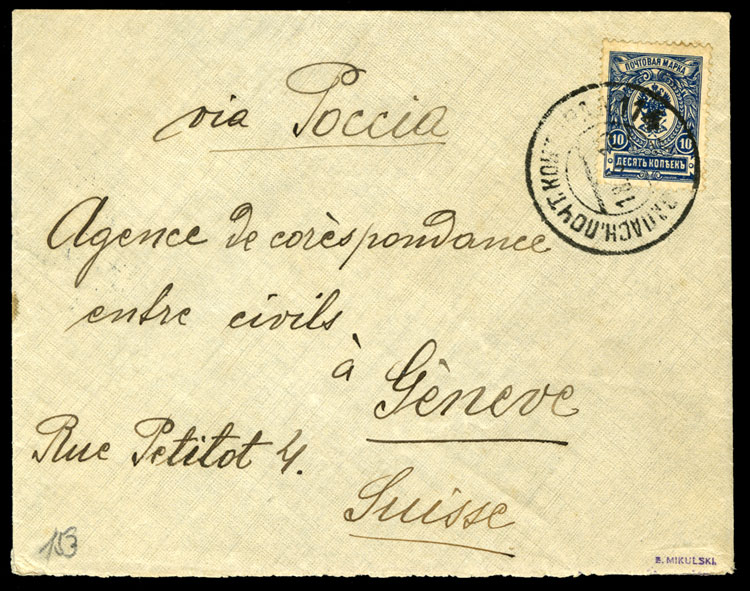 via Россія
ПОЧТОВАЯ МАРКА
10 10
ДЕСЯТЬ КОПѢЕКЪ
ЗАПАСН.ПОЧТ.КОН
Agence de corèspondance
entre civils
à Gèneve
Rue Petitot 4.
Suisse
153
B. MIKULSKI.